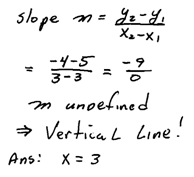 slope m = (y₂-y₁)/(x₂-x₁)
= (-4-5)/(3-3) = -9/0
m undefined
⇒ Vertical Line!
Ans: x = 3